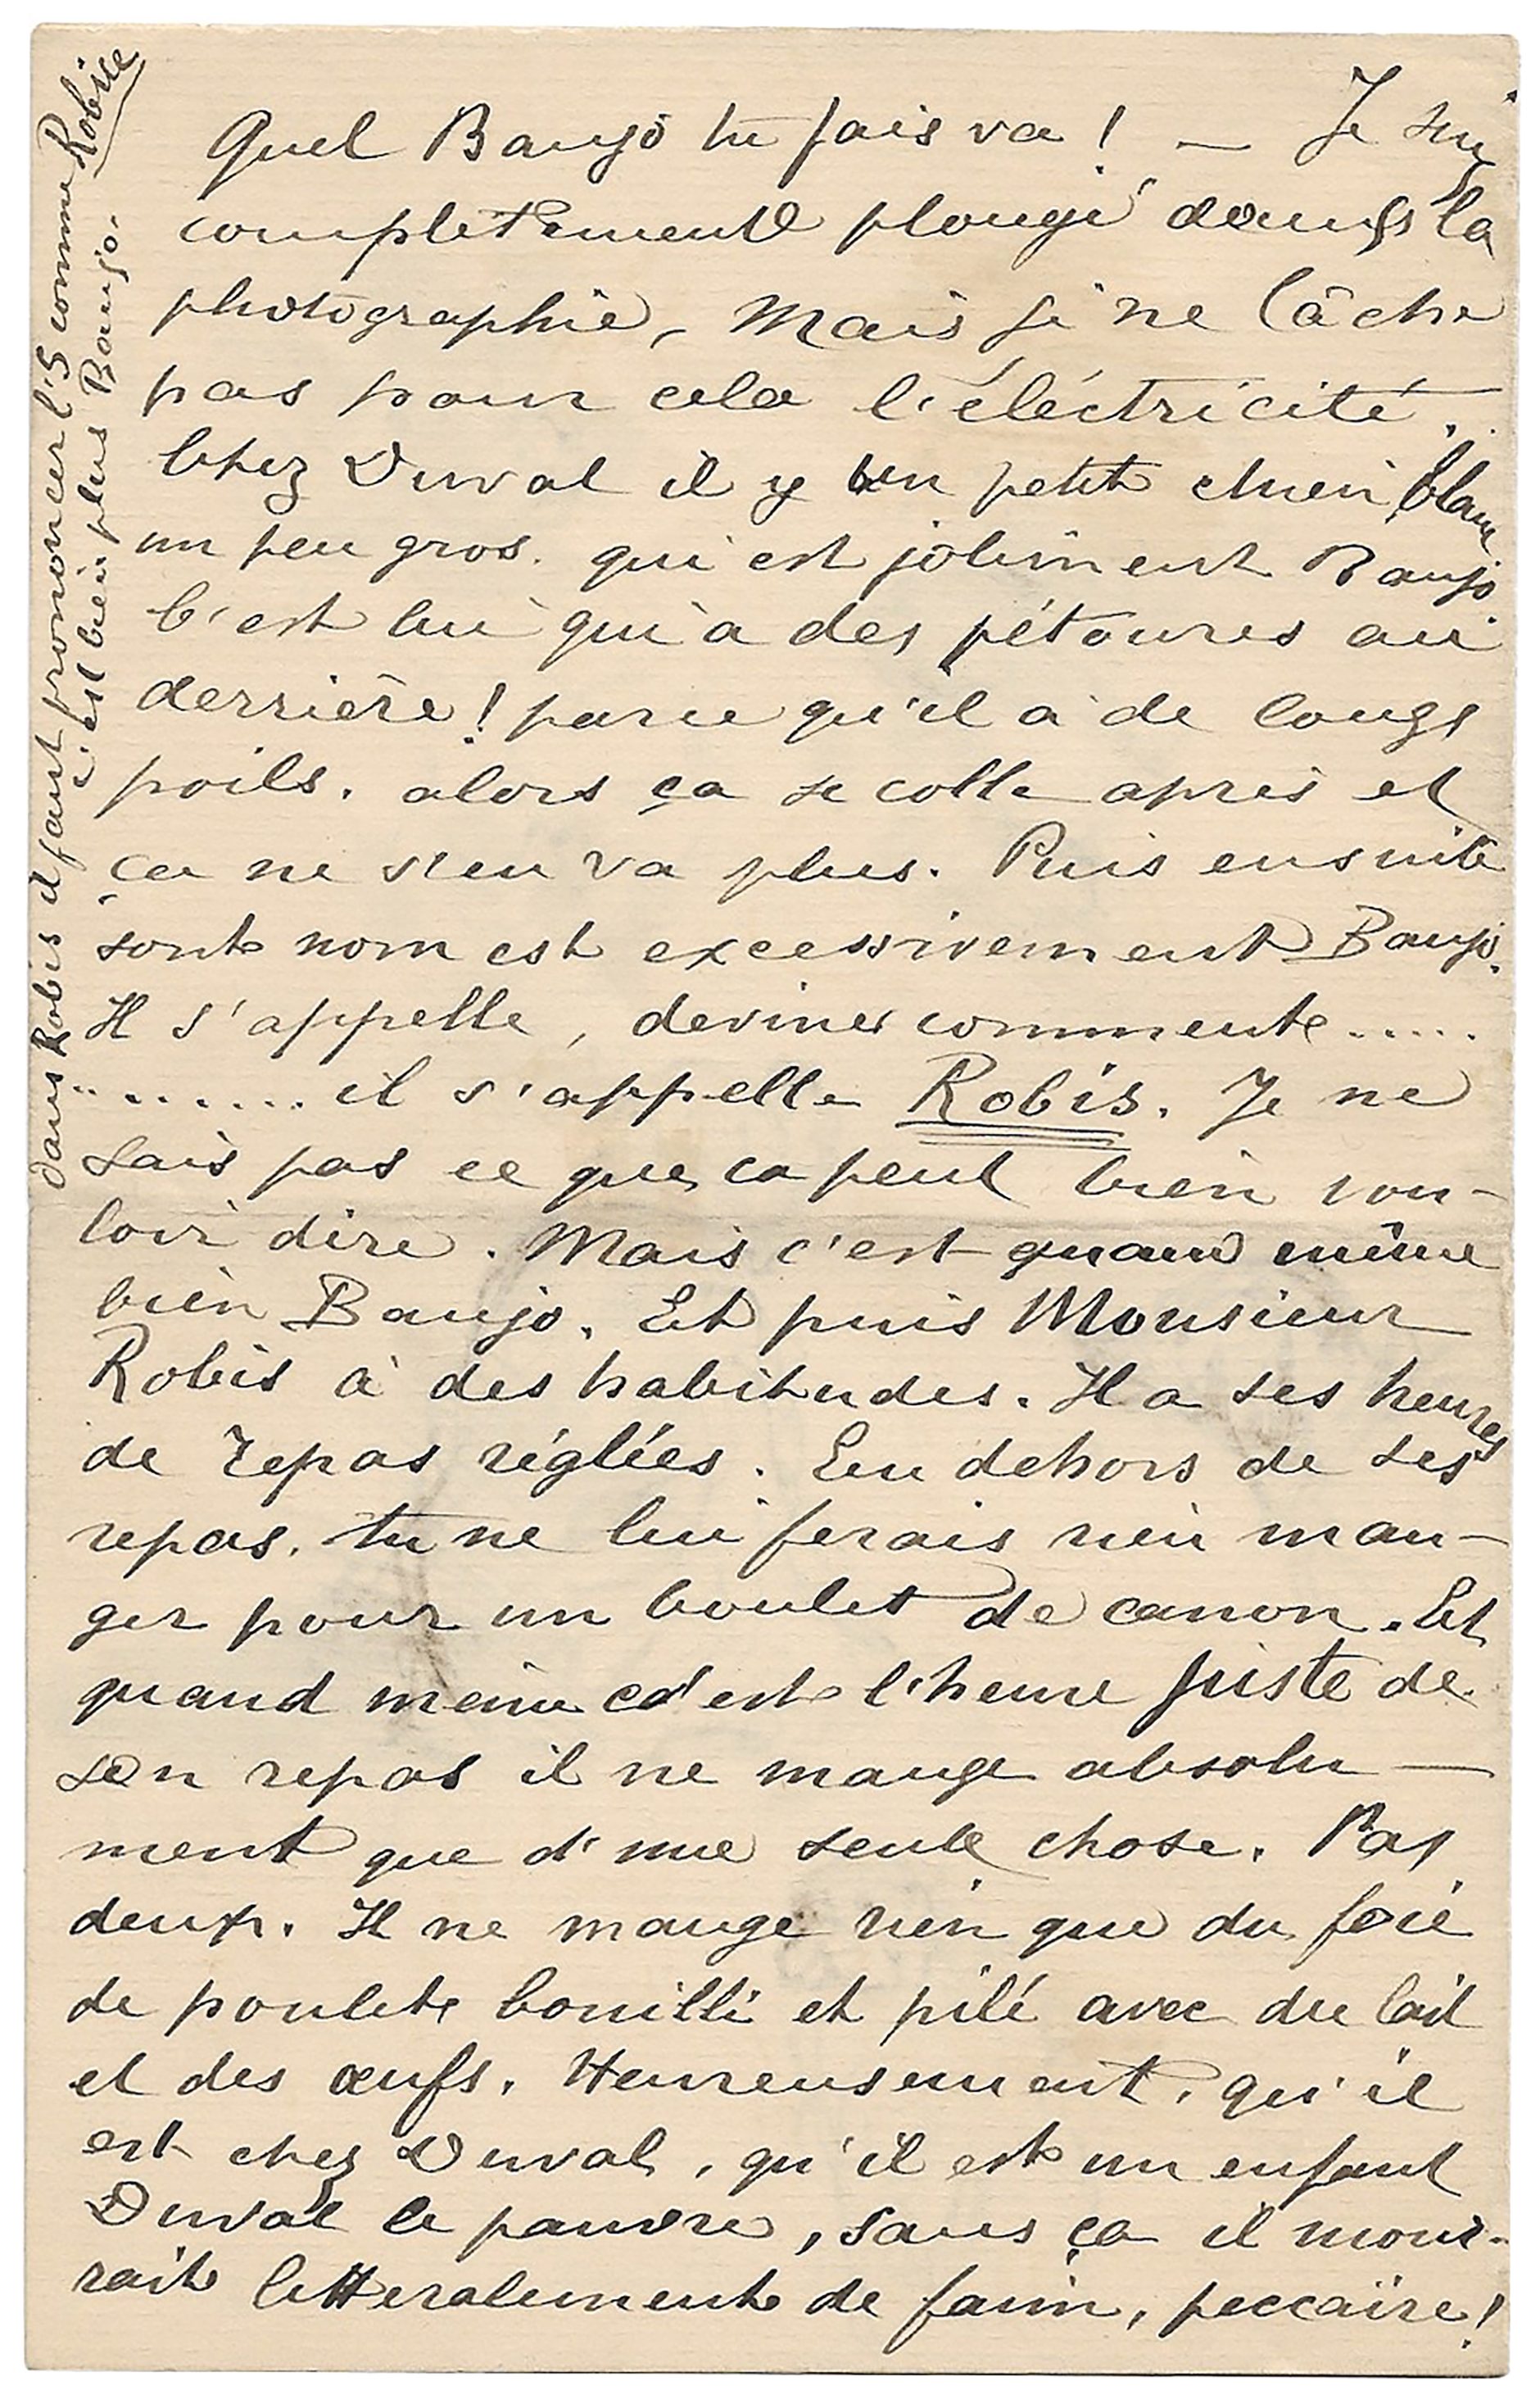 Quel Banjo tu fais va ! — Je suis
complètement plongé dans la
photographie, Mais je ne lâche
pas pour cela l'éléctricité.
Chez Duval il y un petit chien blanc
un peu gros. qui est joliment Banjo.
C'est lui qui a des pétoures au
derrière ! parce qu'il à de longs
poils. alors ça se colle après et
ça ne s'en va plus. Puis ensuite
sont nom est excessivement Banjo.
Il s'appelle, devines comment.....
......... il s'appelle Robis. Je ne
sais pas ce que ça peut bien vou-
loir dire. Mais c'est quand même
bien Banjo. Et puis Monsieur
Robis à des habitudes. Il a ses heures
de repas réglées. En dehors de ses
repas. tu ne lui ferais rien man-
ger pour un boulet de canon. Et
quand même c'est l'heure juste de
son repas il ne mange absolu—
ment que d'une seule chose. Pas
deux. Il ne mange rien que du foie
de poulet bouilli et pilé avec du lait
et des œufs. Heureusement, qu'il
est chez Duval, qu'il est un enfant
Duval le pauvre, sans ça il mour-
rait litteralement de faim, peccaïre !
dans Robis il faut prononcer l'S comme Robisse
c'est bien plus Banjo.